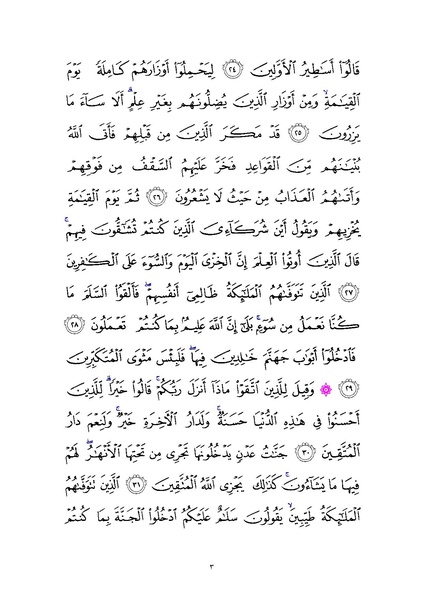 قَالُوٓا۟ أَسَٰطِيرُ ٱلْأَوَّلِينَ ﴿٢٤﴾ لِيَحْمِلُوٓا۟ أَوْزَارَهُمْ كَامِلَةً يَوْمَ
ٱلْقِيَٰمَةِ ۙ وَمِنْ أَوْزَارِ ٱلَّذِينَ يُضِلُّونَهُم بِغَيْرِ عِلْمٍ ۗ أَلَا سَآءَ مَا
يَزِرُونَ ﴿٢٥﴾ قَدْ مَكَرَ ٱلَّذِينَ مِن قَبْلِهِمْ فَأَتَى ٱللَّهُ
بُنْيَٰنَهُم مِّنَ ٱلْقَوَاعِدِ فَخَرَّ عَلَيْهِمُ ٱلسَّقْفُ مِن فَوْقِهِمْ
وَأَتَىٰهُمُ ٱلْعَذَابُ مِنْ حَيْثُ لَا يَشْعُرُونَ ﴿٢٦﴾ ثُمَّ يَوْمَ ٱلْقِيَٰمَةِ
يُخْزِيهِمْ وَيَقُولُ أَيْنَ شُرَكَآءِىَ ٱلَّذِينَ كُنتُمْ تُشَٰٓقُّونَ فِيهِمْ ۚ
قَالَ ٱلَّذِينَ أُوتُوا۟ ٱلْعِلْمَ إِنَّ ٱلْخِزْىَ ٱلْيَوْمَ وَٱلسُّوٓءَ عَلَى ٱلْكَٰفِرِينَ
﴿٢٧﴾ ٱلَّذِينَ تَتَوَفَّىٰهُمُ ٱلْمَلَٰٓئِكَةُ ظَالِمِىٓ أَنفُسِهِمْ ۖ فَأَلْقَوُا۟ ٱلسَّلَمَ مَا
كُنَّا نَعْمَلُ مِن سُوٓءٍۭ ۚ بَلَىٰٓ إِنَّ ٱللَّهَ عَلِيمٌۢ بِمَا كُنتُمْ تَعْمَلُونَ ﴿٢٨﴾
فَٱدْخُلُوٓا۟ أَبْوَٰبَ جَهَنَّمَ خَٰلِدِينَ فِيهَا ۖ فَلَبِئْسَ مَثْوَى ٱلْمُتَكَبِّرِينَ
﴿٢٩﴾ ۞ وَقِيلَ لِلَّذِينَ ٱتَّقَوْا۟ مَاذَآ أَنزَلَ رَبُّكُمْ ۚ قَالُوا۟ خَيْرًا ۗ لِّلَّذِينَ
أَحْسَنُوا۟ فِى هَٰذِهِ ٱلدُّنْيَا حَسَنَةٌ ۚ وَلَدَارُ ٱلْءَاخِرَةِ خَيْرٌ ۚ وَلَنِعْمَ دَارُ
ٱلْمُتَّقِينَ ﴿٣٠﴾ جَنَّٰتُ عَدْنٍ يَدْخُلُونَهَا تَجْرِى مِن تَحْتِهَا ٱلْأَنْهَٰرُ ۖ لَهُمْ
فِيهَا مَا يَشَآءُونَ ۚ كَذَٰلِكَ يَجْزِى ٱللَّهُ ٱلْمُتَّقِينَ ﴿٣١﴾ ٱلَّذِينَ تَتَوَفَّىٰهُمُ
ٱلْمَلَٰٓئِكَةُ طَيِّبِينَ ۙ يَقُولُونَ سَلَٰمٌ عَلَيْكُمُ ٱدْخُلُوا۟ ٱلْجَنَّةَ بِمَا كُنتُمْ
٣